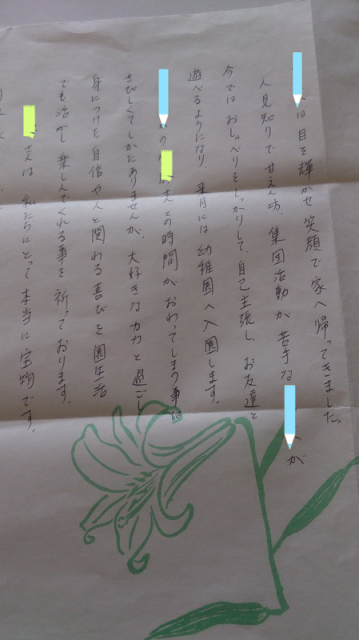 は目を輝かせ笑顔で家へ帰ってきました。
人見知りで甘えん坊、集団活動が苦手な が
今ではおしゃべりもしっかりして自己主張し、お友達と
遊べるようになり、来月には幼稚園へ入園します。
の さんとの時間がおわってしまう事は
さびしくてしかたありませんが、大好きなカカと過ごし
身につけた自信や人と関わる喜びを園生活
でも活かし楽しんでくれる事を祈っております。
さんは私たちにとって本当に宝物です。